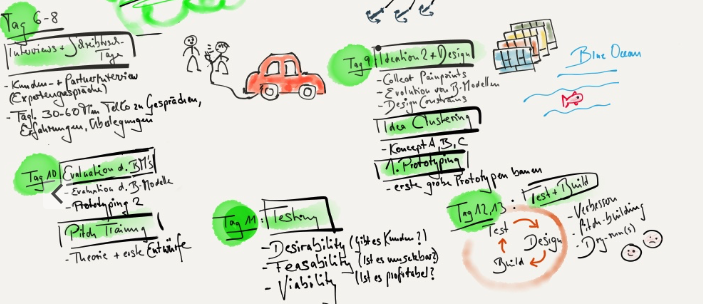 Tag 6-8
Interviews + Schreibtisch-
Tage
- Kunden- + Partnerinterview
(Expertengespräche)
- Tägl. 30-60 Min Telko zu Gesprächen,
Erfahrungen, Überlegungen
Tag 9
Ideation 2 + Design
- Collect Painpoints
- Evolution von B-Modellen
- Design Constrains
Idea Clustering
- Konzept A, B, C
1. Prototyping
- erste grobe Prototypen bauen
Blue Ocean
Tag 10
Evaluation d. BM's
- Evaluation d. B-Modelle
- Prototyping 2
Pitch Training
- Theorie + erste Entwürfe
Tag 11: Testing
- Desirability (Gibt es Kunden?)
- Feasability (Ist es umsetzbar?)
- Viability (Ist es profitabel?)
Tag 12, 13: Test + Build
Test
Design
Build
- Verbessern
- Pitch-building
- Dry-run(s)